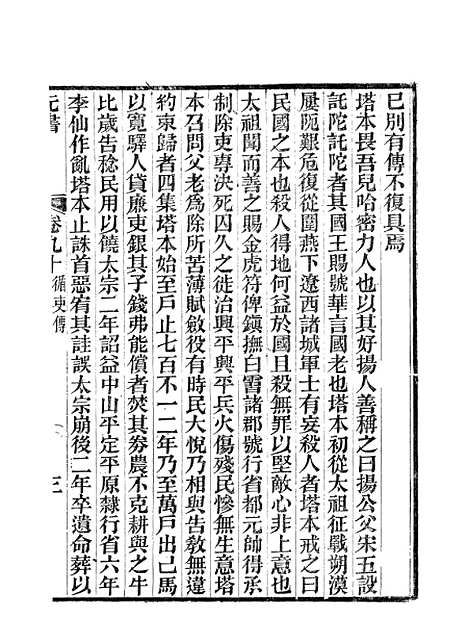 已別有傳不復具焉
塔本畏吾兒哈密力人也以其好揚人善稱之曰揚公父宋五設
託陀託陀者其國王賜號華言國老也塔本初從太祖征戰朔漠
屢阨艱危復從圍燕下遼西諸城軍士有妄殺人者塔本戒之曰
民國之本也殺人得地何益於國且殺無罪以堅敵心非上意也
太祖聞而善之賜金虎符俾鎮撫白霫諸郡號行省都元帥得承
制除吏專決死囚久之徙治興平興平兵火傷殘民慘無生意塔
本召問父老為除所苦薄賦斂役有時民大悅乃相與告教無違
約束歸者四集塔本始至戶止七百不一二年乃至萬戶出己馬
以寬驛人貸廉吏銀其子錢弗能償者焚其券農不克耕與之牛
比歲告稔民用以饒太宗二年詔益中山平定平原隸行省六年
李仙作亂塔本止誅首惡宥其詿誤太宗崩後二年卒遺命葬以
元書 卷九十 循吏傳 三